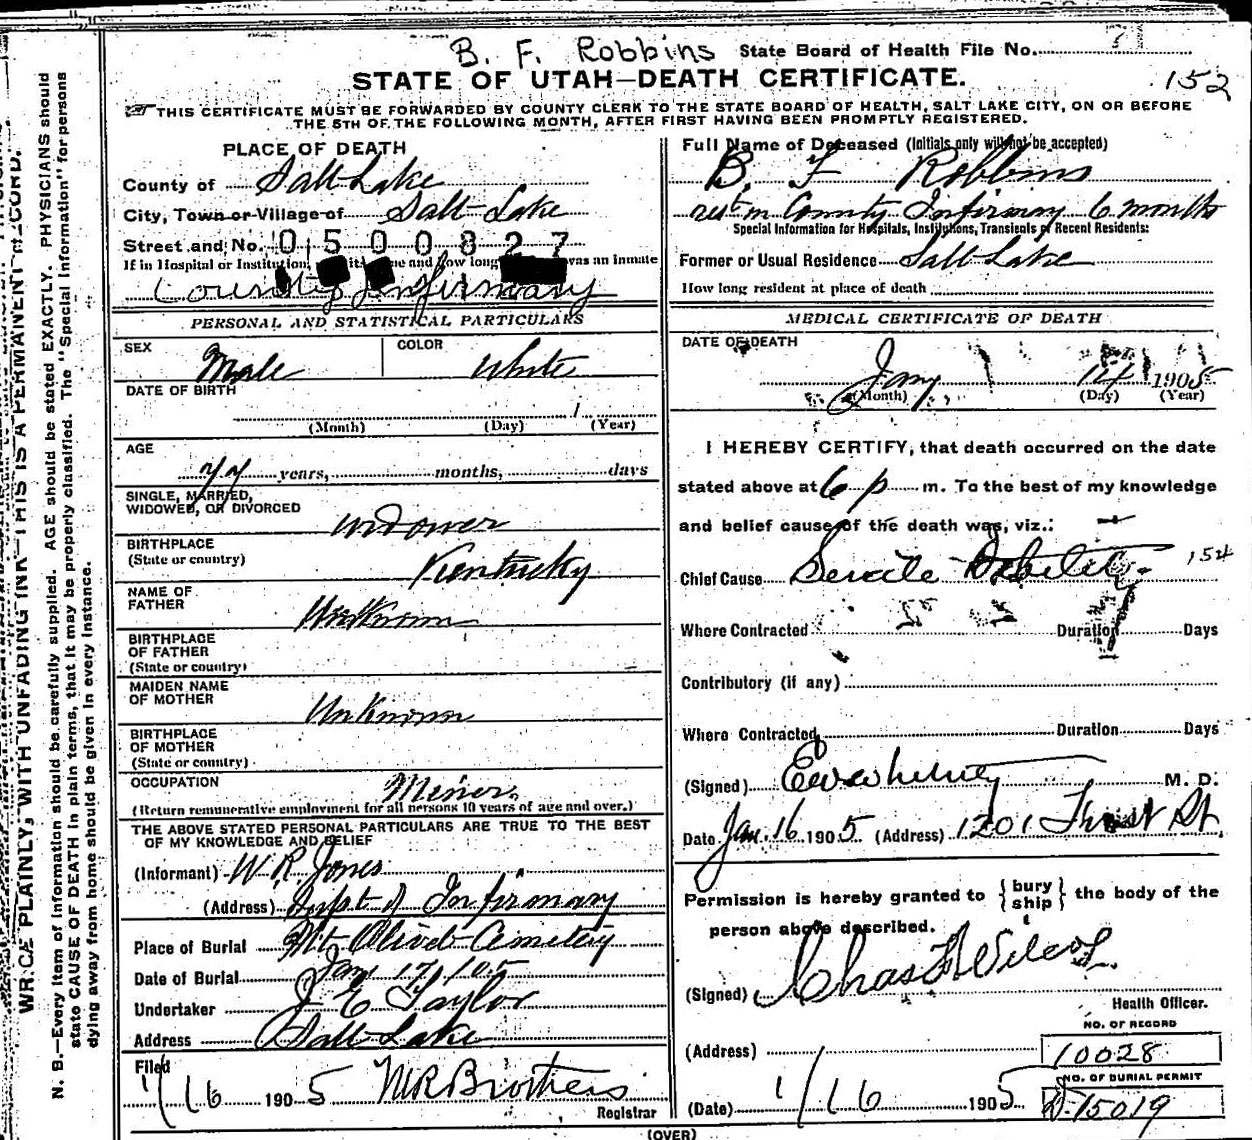 B. F. Robbins State Board of Health File No.
STATE OF UTAH—DEATH CERTIFICATE.
152
THIS CERTIFICATE MUST BE FORWARDED BY COUNTY CLERK TO THE STATE BOARD OF HEALTH, SALT LAKE CITY, ON OR BEFORE
THE 5TH OF THE FOLLOWING MONTH, AFTER FIRST HAVING BEEN PROMPTLY REGISTERED.
WRITE PLAINLY, WITH UNFADING INK—THIS IS A PERMANENT RECORD.
N. B.—Every item of information should be carefully supplied. AGE should be stated EXACTLY. PHYSICIANS should
state CAUSE OF DEATH in plain terms, that it may be properly classified. The "Special Information" for persons
dying away from home should be given in every instance.
PLACE OF DEATH
County of Salt Lake
City, Town or Village of Salt Lake
Street and No. 0500827
If in Hospital or Institution, its name and how long was an inmate
County Infirmary
PERSONAL AND STATISTICAL PARTICULARS
SEX Male COLOR White
DATE OF BIRTH
1
(Month) (Day) (Year)
AGE
77 years, months, days
SINGLE, MARRIED,
WIDOWED, OR DIVORCED
Widower
BIRTHPLACE
(State or country)
Kentucky
NAME OF
FATHER
Unknown
BIRTHPLACE
OF FATHER
(State or country)
MAIDEN NAME
OF MOTHER
Unknown
BIRTHPLACE
OF MOTHER
(State or country)
OCCUPATION
Miner
(Return remunerative employment for all persons 10 years of age and over.)
THE ABOVE STATED PERSONAL PARTICULARS ARE TRUE TO THE BEST
OF MY KNOWLEDGE AND BELIEF
(Informant) W R Jones
(Address) Supt of Infirmary
Place of Burial Mt Olivet Cemetery
Date of Burial Jan 17, 105
Undertaker J E Taylor
Address Salt Lake
Filed
1/16 1905 M R Brothers
Registrar
Full Name of Deceased (Initials only will not be accepted)
B. F Robbins
res in County Infirmary 6 months
Special Information for Hospitals, Institutions, Transients or Recent Residents:
Former or Usual Residence Salt Lake
How long resident at place of death
MEDICAL CERTIFICATE OF DEATH
DATE OF DEATH
Jany 14 1905
(Month) (Day) (Year)
I HEREBY CERTIFY, that death occurred on the date
stated above at 6 p m. To the best of my knowledge
and belief cause of the death was, viz.:
Chief Cause Senile Debility 154
Where Contracted Duration Days
Contributory (if any)
Where Contracted Duration Days
(Signed) Ewwhitney M. D.
Date Jan. 16 1905 (Address) 1201 St.
Permission is hereby granted to { bury ship } the body of the
person above described.
(Signed) Chas F Wilcox
Health Officer.
NO. OF RECORD
(Address) 10028
NO. OF BURIAL PERMIT
(Date) 1/16 1905 D-15019
(OVER)